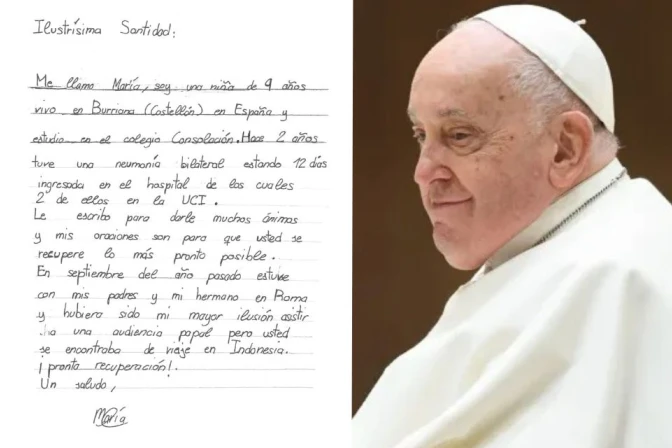 Ilustrísima Santidad:
Me llamo María, soy una niña de 9 años
vivo en Burriana (Castellón) en España y
estudio en el colegio Consolación. Hace 2 años
tuve una neumonía bilateral estando 12 días
ingresada en el hospital de los cuales
2 de ellos en la UCI.
Le escribo para darle muchos ánimos
y mis oraciones son para que usted se
recupere lo más pronto posible.
En septiembre del año pasado estuve
con mis padres y mi hermano en Roma
y hubiera sido mi mayor ilusión asistir
a una audiencia papal pero usted
se encontraba de viaje en Indonesia.
¡pronta recuperación!.
Un saludo,
María